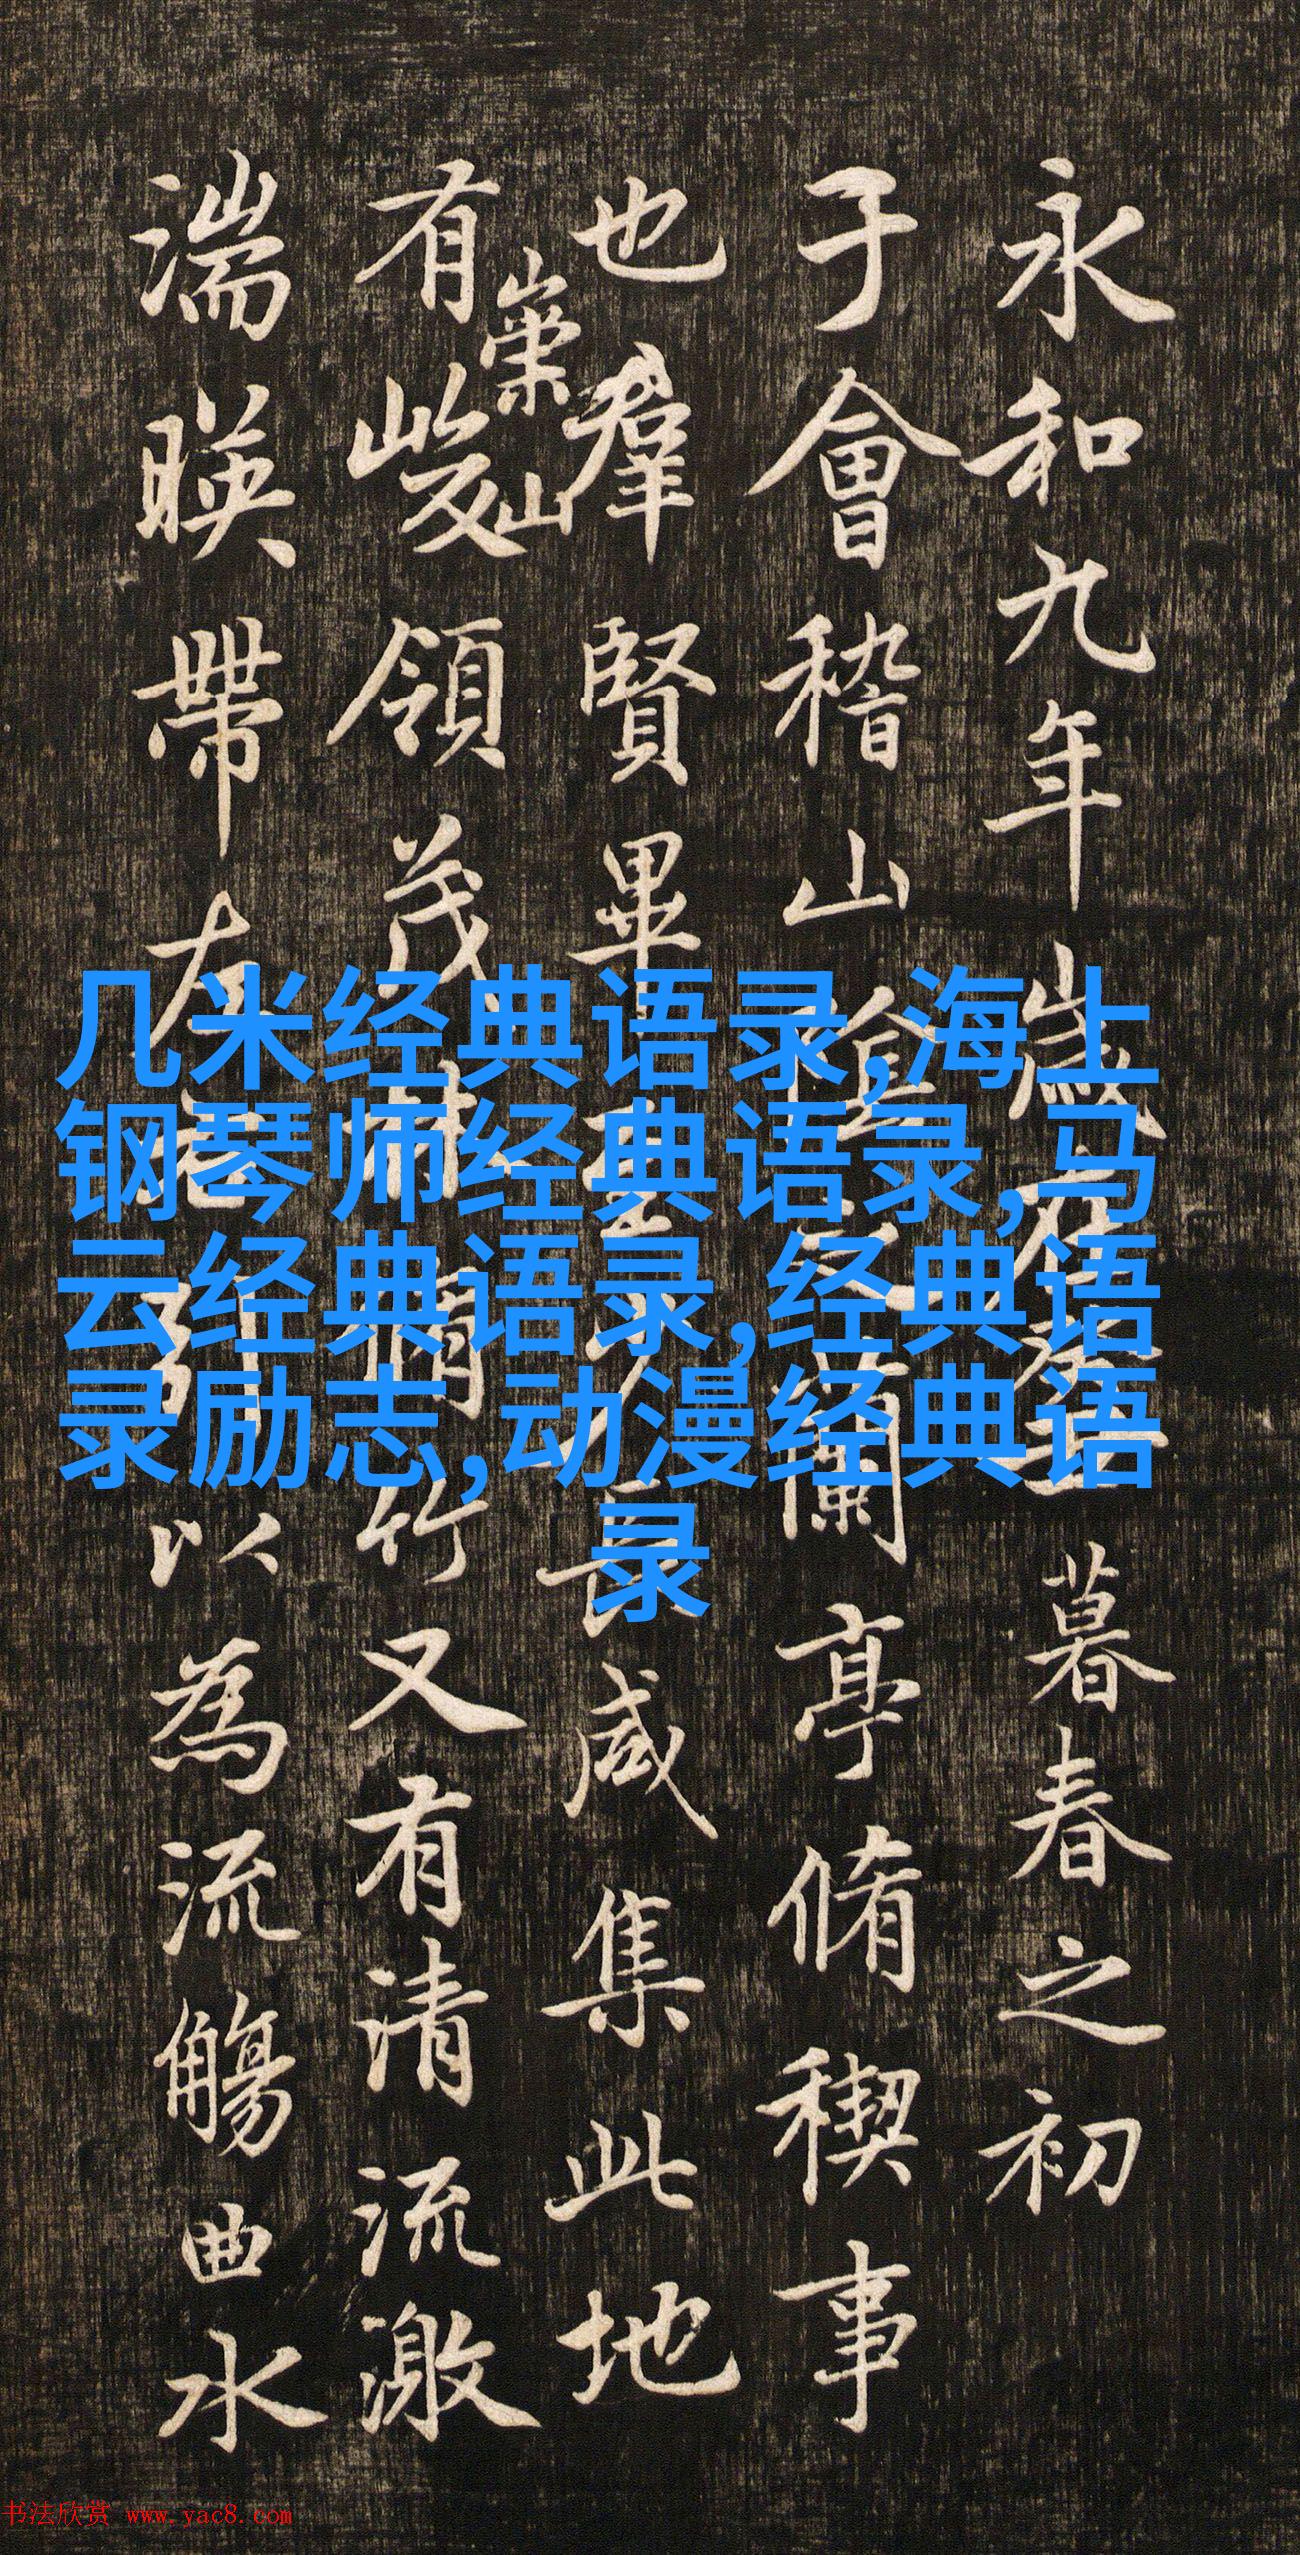 永和九年歲在癸丑暮春之初
于會稽山陰之蘭亭脩稧事
也羣賢畢至少長咸集此地
有崇山
峻領茂林脩竹又有清流激
湍暎帶左右引以為流觴曲水
几米经典语录,海上
钢琴师经典语录,马
云经典语录,经典语
录励志,动漫经典语
录
书法欣赏 www.yac8.com